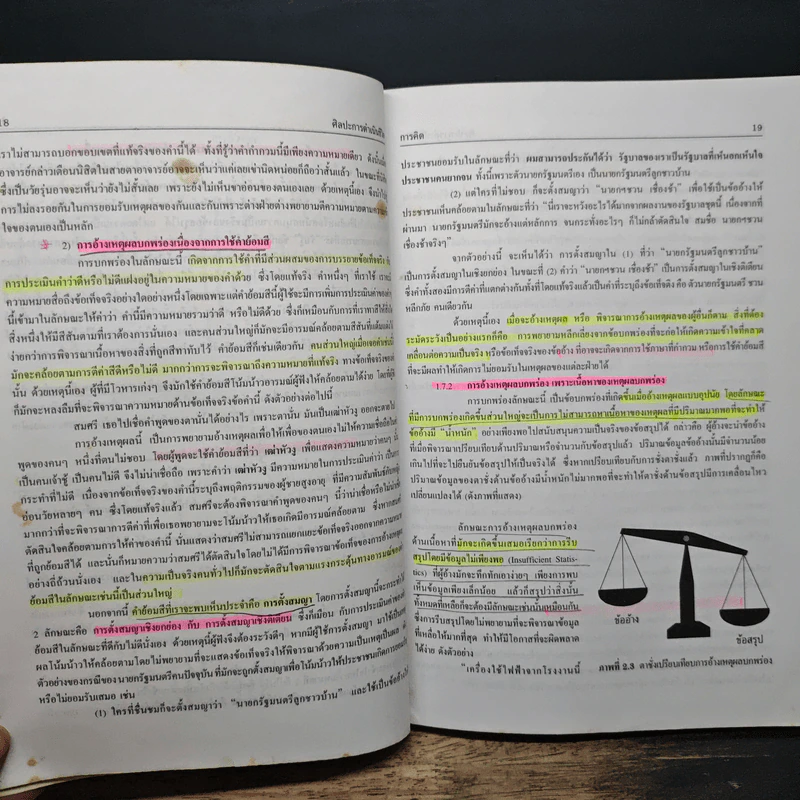 18 ศิลปะการดำเนินชีวิต
เราไม่สามารถบอกขอบเขตที่แท้จริงของคำนี้ได้ ทั้งที่รู้ว่าคำกำกวมนี้มีเพียงความหมายเดียว ดังนั้นเมื่อ
อาจารย์กล่าวเตือนนิสิตในสายตาอาจารย์อาจจะเห็นว่าแค่เลยเข่านิดหน่อยก็ถือว่าสั้นแล้ว ในขณะที่นิสิต
ซึ่งเป็นวัยรุ่นอาจจะเห็นว่ายังไม่สั้นเลย เพราะยังไม่เห็นขาอ่อนของตนเองเลย ด้วยเหตุนี้เอง จึงนำไปสู่
การไม่ลงรอยกันในการยอมรับเหตุผลของกันและกันเพราะต่างฝ่ายต่างพยายามตีความหมายตามความเข้า
ใจของตนเองเป็นหลัก
2) การอ้างเหตุผลบกพร่องเนื่องจากการใช้คำย้อมสี
การบกพร่องในลักษณะนี้ เกิดจากการใช้คำที่มีส่วนผสมของการบรรยายข้อเท็จจริง กับ
การประเมินค่าว่าดีหรือไม่ดีแฝงอยู่ในความหมายของคำด้วย ซึ่งโดยแท้จริง คำหนึ่งๆ ที่เราใช้
ความหมายสื่อถึงข้อเท็จจริงอย่างใดอย่างหนึ่งโดยเฉพาะแต่คำย้อมสีนี้ผู้ใช้จะมีการเพิ่มการประเมินค่าของคำ
นี้เข้ามาในลักษณะให้คำว่า คำนี้มีความหมายรวมว่าดี หรือ ไม่ดีด้วย ซึ่งก็เหมือนกับการที่เราทาสีให้กับ
สิ่งหนึ่งให้มีสีสันตามที่เราต้องการนั่นเอง และคนส่วนใหญ่ก็มักจะมีอารมณ์คล้อยตามสีสันที่แต้มแต่ง
ง่ายกว่าการพิจารณาเนื้อหาของสิ่งที่ถูกสีทาทับไว้ คำย้อมสีก็เช่นเดียวกัน คนส่วนใหญ่เมื่อเจอคำเช่นนี้
มักจะคล้อยตามการตีค่าสีดีหรือไม่ดี มากกว่าการจะพิจารณาถึงความหมายที่แท้จริง ทางข้อเท็จจริงของคำ
นั้น ด้วยเหตุนี้เอง ผู้ที่มีโวหารเก่งๆ จึงมักใช้คำย้อมสีโน้มน้าวอารมณ์ผู้ฟังให้คล้อยตามได้ง่าย โดยที่ผู้ฟัง
ก็มักจะหลงลืมที่จะพิจารณาความหมายด้านข้อเท็จจริงของคำนี้ ดังตัวอย่างต่อไปนี้
สมศรี เธอไปเชื่อคำพูดของตานั่นได้อย่างไร เพราะตานั่น มันเป็นเฒ่าหัวงู ออกจะตายไป
การอ้างเหตุผลนี้ เป็นการพยายามอ้างเหตุผลเพื่อให้เพื่อของตนเองไม่ให้ความเชื่อถือใน
พูดของคนๆ หนึ่งที่ตนไม่ชอบ โดยผู้พูดจะใช้คำย้อมสีที่ว่า เฒ่าหัวงู เพื่อแสดงความหมายว่าคนๆ นั้น
เป็นคนเจ้าชู้ เป็นคนไม่ดี จึงไม่น่าเชื่อถือ เพราะคำว่า เฒ่าหัวงู มีความหมายในการประเมินค่าว่า เป็นการ
กระทำที่ไม่ดี เนื่องจากข้อเท็จจริงของคำนี้ระบุถึงพฤติกรรมของผู้ชายสูงอายุ ที่มีความสัมพันธ์กับผู้หญิง
อ่อนวัยหลายๆ คน ซึ่งโดยแท้จริงแล้ว สมศรีจะต้องพิจารณาคำพูดของคนๆ นี้ว่าน่าเชื่อหรือไม่น่าเชื่อ
มากกว่าที่จะพิจารณาการตีค่าที่เพื่อเธอพยายามจะโน้มน้าวให้เธอเกิดมีอารมณ์คล้อยตาม ซึ่งหากสมศรี
ตัดสินใจคล้อยตามการให้ค่าของคำนี้ นั่นแสดงว่าสมศรีไม่สามารถแยกแยะข้อเท็จจริงออกจากความหมาย
ที่ถูกย้อมสีได้ และนั่นก็หมายความว่าสมศรีได้ตัดสินใจโดยไม่ได้มีการพิจารณาข้อเท็จจริงของการอ้างเหตุผล
อย่างถี่ถ้วนนั่นเอง และในความเป็นจริงคนทั่วไปก็มักจะตัดสินใจตามแรงกระตุ้นทางอารมณ์ของคำ
ย้อมสีในลักษณะเช่นนี้เป็นส่วนใหญ่
นอกจากนี้ คำย้อมสีที่เราจะพบเห็นประจำคือ การตั้งสมญา โดยการตั้งสมญานี้จะกระทำใน
2 ลักษณะคือ การตั้งสมญาเชิงยกย่อง กับ การตั้งสมญาเชิงติเตียน ซึ่งก็เหมือน กับการประเมินค่าของคำ
ย้อมสีในลักษณะที่ดีกับไม่ดีนั่นเอง ด้วยเหตุนี้ผู้ฟังจึงต้องระวังดีๆ หากมีผู้ใช้การตั้งสมญา มาใช้เป็นเหตุ
ผลโน้มน้าวให้คล้อยตามโดยไม่พยายามที่จะแสดงข้อเท็จจริงให้พิจารณาด้วยความเป็นเหตุเป็นผล
ตัวอย่างของกรณีของนายกรัฐมนตรีคนปัจจุบัน ที่มักจะถูกตั้งสมญาเพื่อโน้มน้าวให้ประชาชนเกิดการยอมรับ
หรือไม่ยอมรับเสมอ เช่น
(1) ใครที่ชื่นชมก็จะตั้งสมญาว่า "นายกรัฐมนตรีลูกชาวบ้าน" และใช้เป็นข้ออ้างให้
การคิด 19
ประชาชนยอมรับในลักษณะที่ว่า ผมสามารถประกันได้ว่า รัฐบาลของเราเป็นรัฐบาลที่เห็นอกเห็นใจ
ประชาชนคนยากจน ทั้งนี้เพราะตัวนายกรัฐมนตรีเอง เป็นนายกรัฐมนตรีลูกชาวบ้าน
(2) แต่ใครที่ไม่ชอบ ก็จะตั้งสมญาว่า "นายกฯชวน เชื่องช้า" เพื่อใช้เป็นข้ออ้างให้
ประชาชนเห็นคล้อยตามในลักษณะที่ว่า "นี่เราจะหวังอะไรได้มากจากผลงานของรัฐบาลชุดนี้ เนื่องจากที่
ผ่านมา นายกรัฐมนตรีมักจะอ้างแต่หลักการ จนกระทั่งอะไรๆ ก็ไม่กล้าตัดสินใจ สมชื่อ นายกฯชวน
เชื่องช้าจริงๆ"
จากตัวอย่างนี้ จะเห็นได้ว่า การตั้งสมญาใน (1) ที่ว่า "นายกรัฐมนตรีลูกชาวบ้าน"
เป็นการตั้งสมญาในเชิงยกย่อง ในขณะที่ (2) คำว่า "นายกฯชวน เชื่องช้า" เป็นการตั้งสมญาในเชิงติเตียน
ซึ่งคำทั้งสองมีการตีค่าที่แตกต่างกันทั้งที่โดยแท้จริงแล้วเป็นคำที่ระบุถึงข้อเท็จจริง คือ ตัวนายกรัฐมนตรี ชวน
หลีกภัย คนเดียวกัน
ด้วยเหตุนี้เอง เมื่อจะอ้างเหตุผล หรือ พิจารณาการอ้างเหตุผลของผู้อื่นก็ตาม สิ่งที่ต้อง
ระมัดระวังเป็นอย่างแรกก็คือ การพยายามหลีกเลี่ยงจากข้อบกพร่องที่จะก่อให้เกิดความเข้าใจที่คลาด
เคลื่อนต่อความเป็นจริง หรือข้อเท็จจริงของข้ออ้าง ที่อาจจะเกิดจากการใช้ภาษาที่กำกวม หรือการใช้คำย้อมสี
ที่จะมีผลทำให้เกิดการไม่ยอมรับในเหตุผลของแต่ละฝ่ายได้
1.7.2. การอ้างเหตุผลบกพร่อง เพราะเนื้อหาของเหตุผลบกพร่อง
การบกพร่องลักษณะนี้ เป็นข้อบกพร่องที่เกิดขึ้นเมื่ออ้างเหตุผลแบบอุปนัย โดยลักษณะ
ที่มีการบกพร่องเกิดขึ้นส่วนใหญ่จะเป็นการไม่สามารถหาเนื้อหาของเหตุผลที่มีปริมาณมากพอที่จะทำให้
ข้ออ้างมี "น้ำหนัก" อย่างเพียงพอไปสนับสนุนความเป็นจริงของข้อสรุปได้ กล่าวคือ ผู้อ้างจะนำข้ออ้าง
ที่เมื่อพิจารณาเปรียบเทียบด้านปริมาณหรือจำนวนกับข้อสรุปแล้ว ปริมาณข้อมูลข้ออ้างนั้นมีจำนวนน้อย
เกินไปที่จะไปยืนยันข้อสรุปให้เป็นจริงได้ ซึ่งหากเปรียบเทียบกับการชั่งตาชั่งแล้ว ภาพที่ปรากฏก็คือ
ปริมาณข้อมูลของตาชั่งด้านข้ออ้างมีน้ำหนักไม่มากพอที่จะทำให้ตาชั่งด้านข้อสรุปมีการเคลื่อนไหว
เปลี่ยนแปลงได้ (ดังภาพที่แสดง)
ลักษณะการอ้างเหตุผลบกพร่อง
ด้านเนื้อหาที่มักจะเกิดขึ้นเสมอเรียกว่าการรีบ
สรุปโดยมีข้อมูลไม่เพียงพอ (Insufficient Statis-
tics) ที่ผู้อ้างมักจะทึกทักเอาง่ายๆ เพียงการพบ
เห็นข้อมูลเพียงเล็กน้อย แล้วก็สรุปว่าสิ่งนั้น
ทั้งหมดที่เหลือก็จะต้องมีลักษณะเช่นนั้นเหมือนกัน
ซึ่งการรีบสรุปโดยไม่พยายามที่จะพิจารณาข้อมูล
ที่เหลือให้มากที่สุด ทำให้มีโอกาสที่จะผิดพลาด
ได้ง่าย ดังตัวอย่าง
"เครื่องใช้ไฟฟ้าจากโรงงานนี้
ข้ออ้าง
ข้อสรุป
ภาพที่ 2.3 ตาชั่งเปรียบเทียบการอ้างเหตุผลบกพร่อง